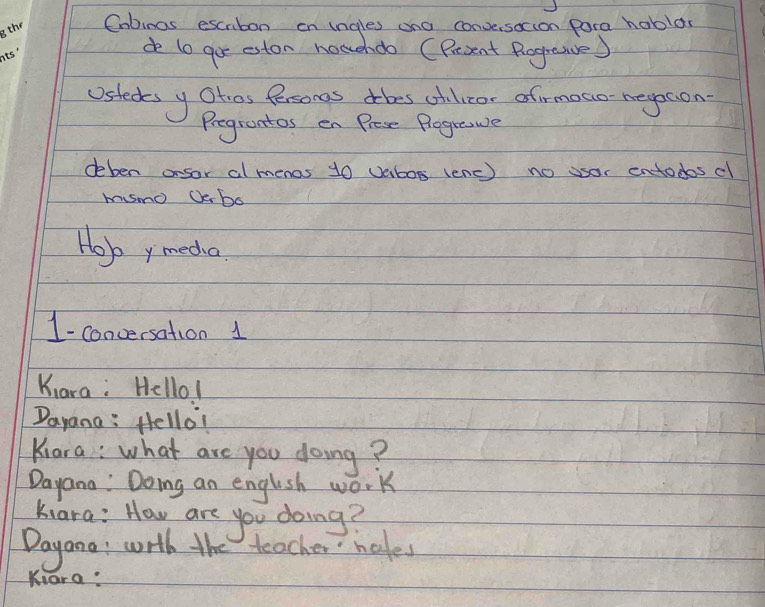 g the
nts'
Enbinas escriban en ingles una conversacion para hablar
de lo que estan haciendo (Present Progresive)
Ustedes y Otras Personas debes utilizar afirmacio-negacion-
Pregruntas en Prese Progresive
deben unsar al menos 10 verbos (enc) no usar entodos el
mismo verbo
Hoja y media.
1-Conversation 1
Kiara: Hello!
Dayana: Hello!
Kiara: What are you doing?
Dayana: Doing an english work
Kiara: How are you doing?
Dayana: with the teacher notes
Kiara: